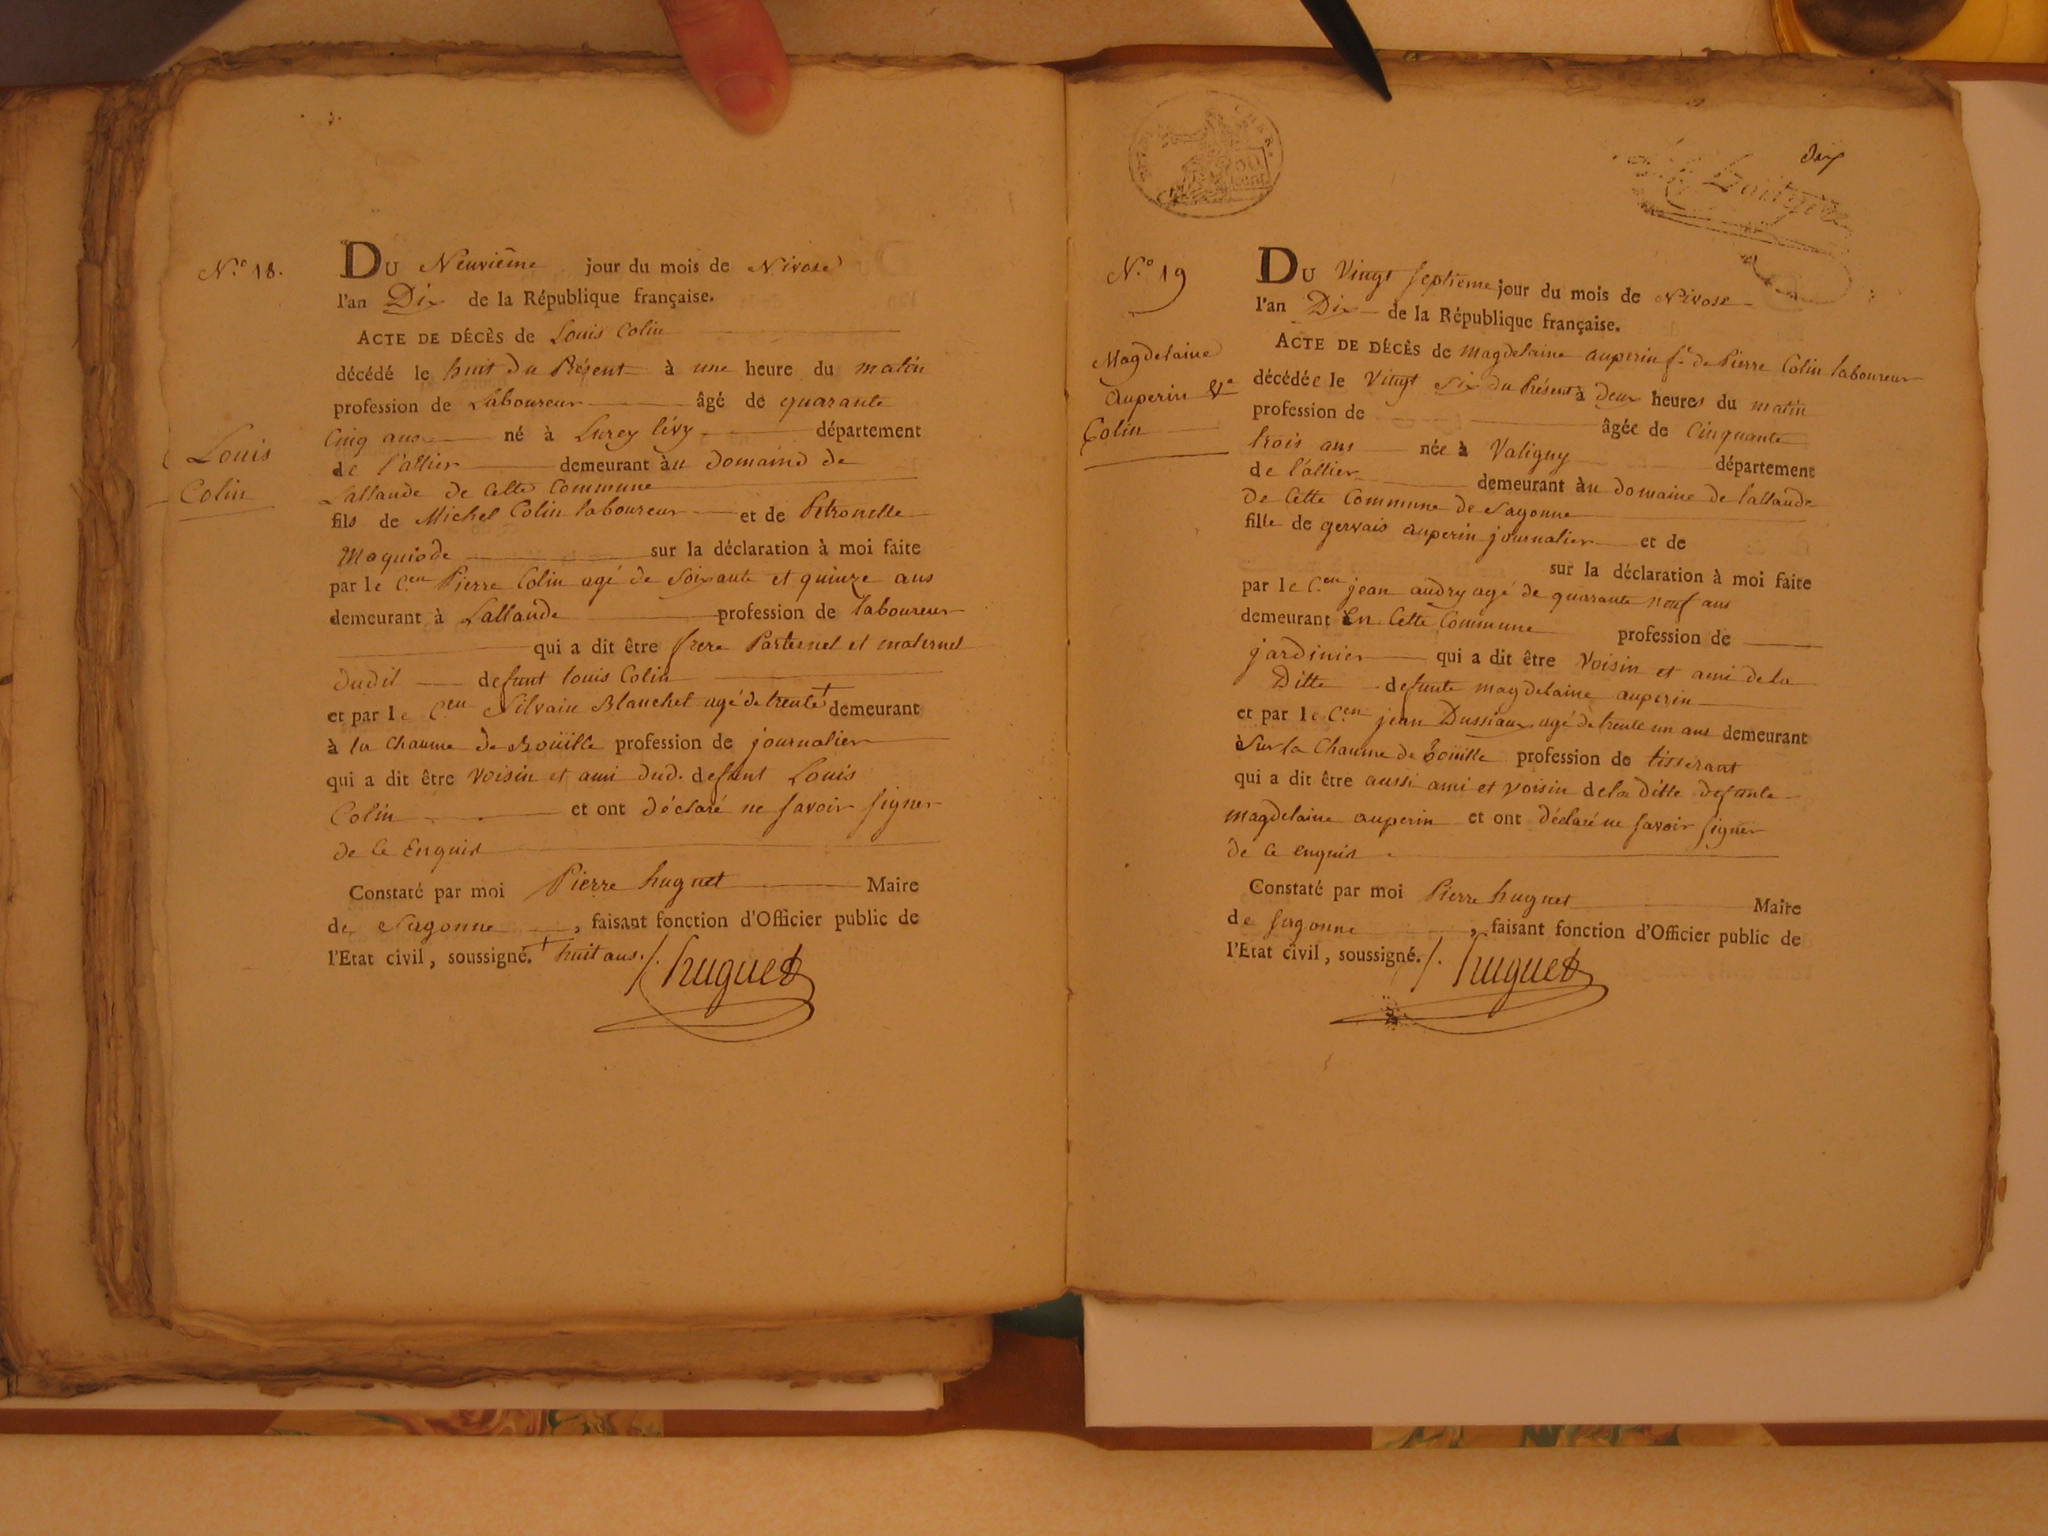 N.º 18.
DU Neuvième jour du mois de Nivose
l'an Dix de la République française.
ACTE DE DÉCÈS de Louis Colin
décédé le huit du Présent à une heure du matin
profession de Laboureur âgé de quarante
Cinq ans né à Lurey lévy département
de l'allier demeurant àu domaine de
Lallaude de Cette Commune
Louis
Colin
fils de Michel Colin laboureur et de Petronelle
sur la déclaration à moi faite
par le C.en Pierre Colin agé de Soixante et quinze ans
demeurant à Lallaude profession de laboureur
qui a dit être frere Paternel et maternel
dudit defunt louis Colin
et par le C.en Silvain Blanchet agé de trente + demeurant
à la Chaume de Boüille profession de journalier
qui a dit être Voisin et ami dud. defunt Louis
Colin et ont déclaré ne savoir signer
de Ce Enquis
Constaté par moi Pierre huguet Maire
de Sagonne, faisant fonction d'Officier public de
l'Etat civil, soussigné. + huit ans./.
huguet
N.º 19
DU Vingt septième jour du mois de Nivose
l'an Dix de la République française.
Magdelaine
Auperin Ve
Colin
ACTE DE DÉCÈS de Magdelaine auperin f.e de Pierre Colin laboureur
décédée le Vingt Six du Présent à deux heures du matin
profession de âgée de Cinquante
trois ans née à Valigny département
de l'allier demeurant àu domaine de lallaude
de Cette Commune de Sagonne
fille de gervais auperin journalier et de
sur la déclaration à moi faite
par le C.en jean audry agé de quarante neuf ans
demeurant En Cette Commune profession de
jardinier qui a dit être Voisin et ami de la
Ditte defunte magdelaine auperin
et par le C.en jean Dussiaux agé de trente un ans demeurant
à Sur la Chaume de Boüille profession de tisserant
qui a dit être aussi ami et voisin de la ditte defunte
magdelaine auperin et ont déclaré ne savoir signer
de Ce enquis.
Constaté par moi Pierre huguet Maire
de sagonne, faisant fonction d'Officier public de
l'Etat civil, soussigné./.
huguet